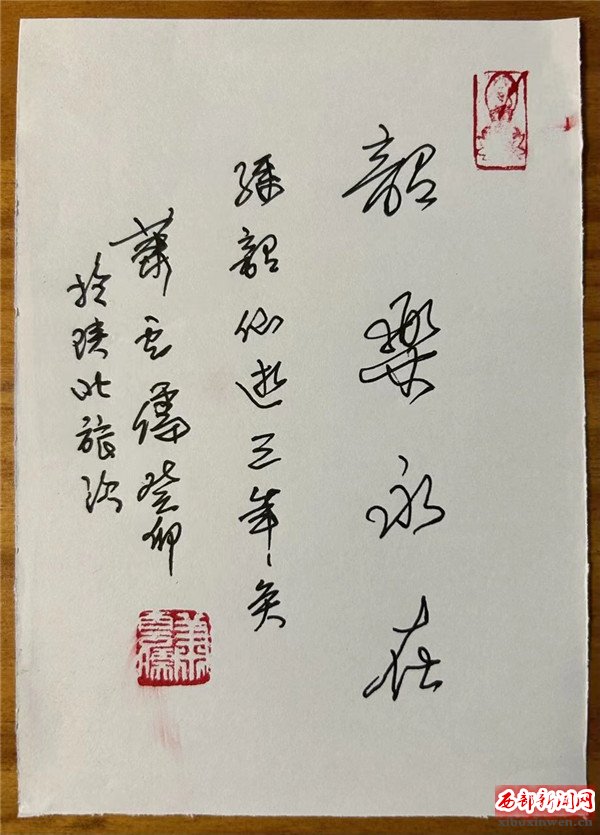 韶樂永在
孫韶仙逝三年矣
蕭云儒癸卯
於陝北旅次
西部新闻网
xibuxinwen.cn